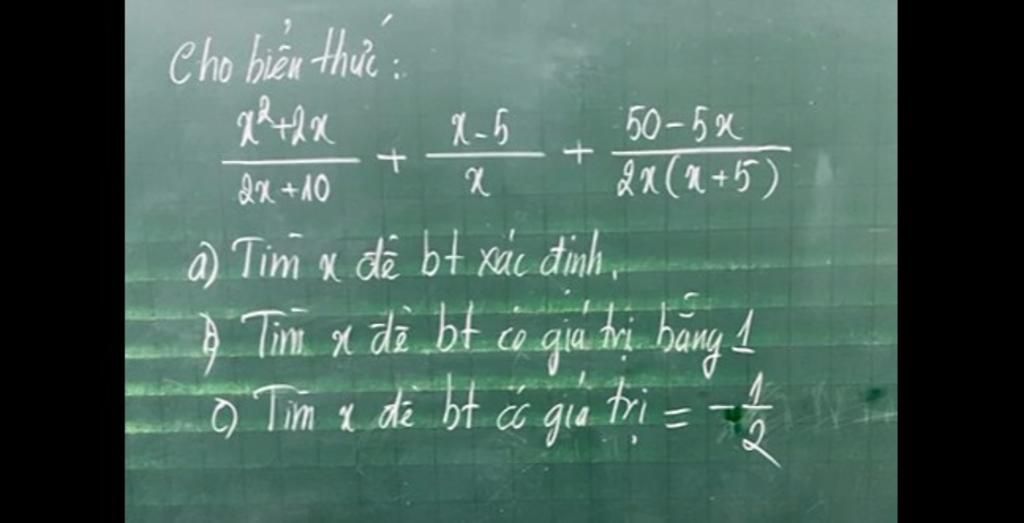 Cho biển thức:
x²+2x / 2x+10 + x-5 / x + 50-5x / 2x(x+5)
a) Tìm x để bt xác định.
b) Tìm x để bt có giá trị bằng 1
c) Tìm x để bt có giá trị = -1/2